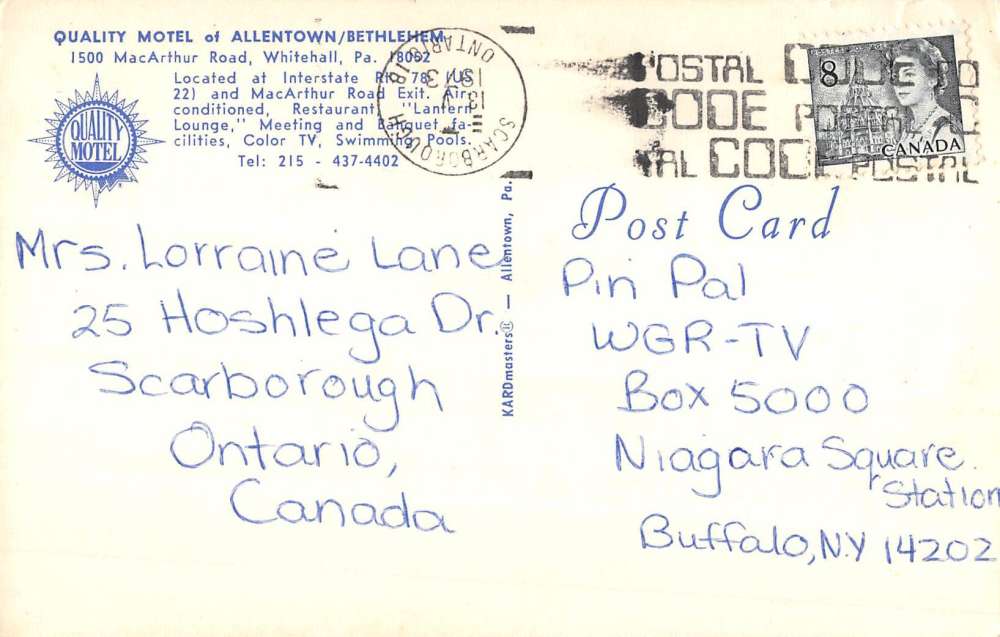 QUALITY MOTEL of ALLENTOWN/BETHLEHEM
1500 MacArthur Road, Whitehall, Pa. 18052
Located at Interstate Rt. 78 (US
22) and MacArthur Road Exit. Air-
conditioned, Restaurant, "Lantern
Lounge," Meeting and Banquet fa-
cilities, Color TV, Swimming Pools.
Tel: 215 - 437-4402
QUALITY
MOTEL
SCARBOROUGH
ONTARIO
POSTAL CODE
CODE POSTAL
CODE POSTAL
8
CANADA
Post Card
KARDmasters® — Allentown, Pa.
Mrs. Lorraine Lane
25 Hoshlega Dr.
Scarborough
Ontario,
Canada
Pin Pal
WGR-TV
Box 5000
Niagara Square
Station
Buffalo, N.Y 14202